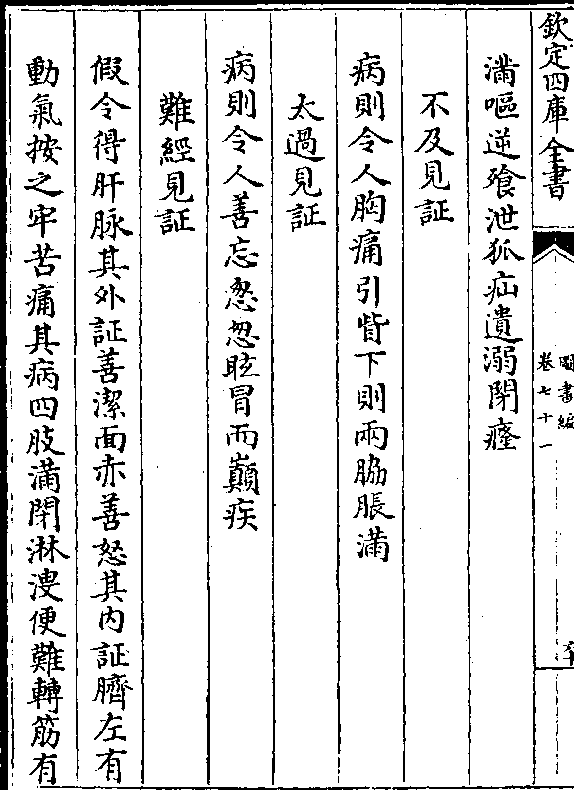 欽定四庫全書
圖書編
卷七十一
滿嘔逆飱泄狐疝遺溺閉癃
不及見証
病則令人胸痛引背下則兩脇脹滿
太過見証
病則令人善忘忽忽眩冒而巔疾
難經見証
假令得肝脉其外証善潔面赤善怒其内証臍左有
動氣按之牢苦痛其病四肢滿閉淋溲便難轉筋有